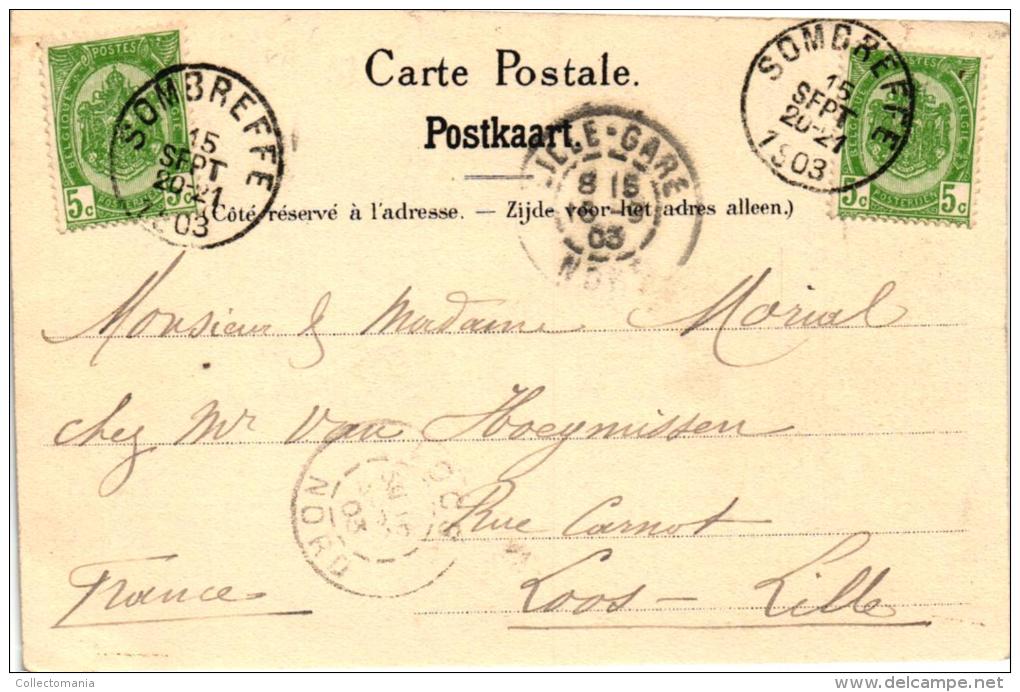 POSTES
BELGIQUE
BELGIË
5c
POSTERIJEN
SOMBREFFE
15
SEPT
20-21
03
Carte Postale.
Postkaart.
(Côté réservé à l'adresse. — Zijde voor het adres alleen.)
LILLE-GARE
8 15
03
NORD
SOMBREFFE
15
SEPT
20-21
1903
POSTES
BELGIË
5c
POSTERIJEN
5c
Monsieur & Madame Morial
chez Mr Van Hoegmissen
Rue Carnot
France Loos - Lille
NORD
03
Collectomania
www.delcampe.net